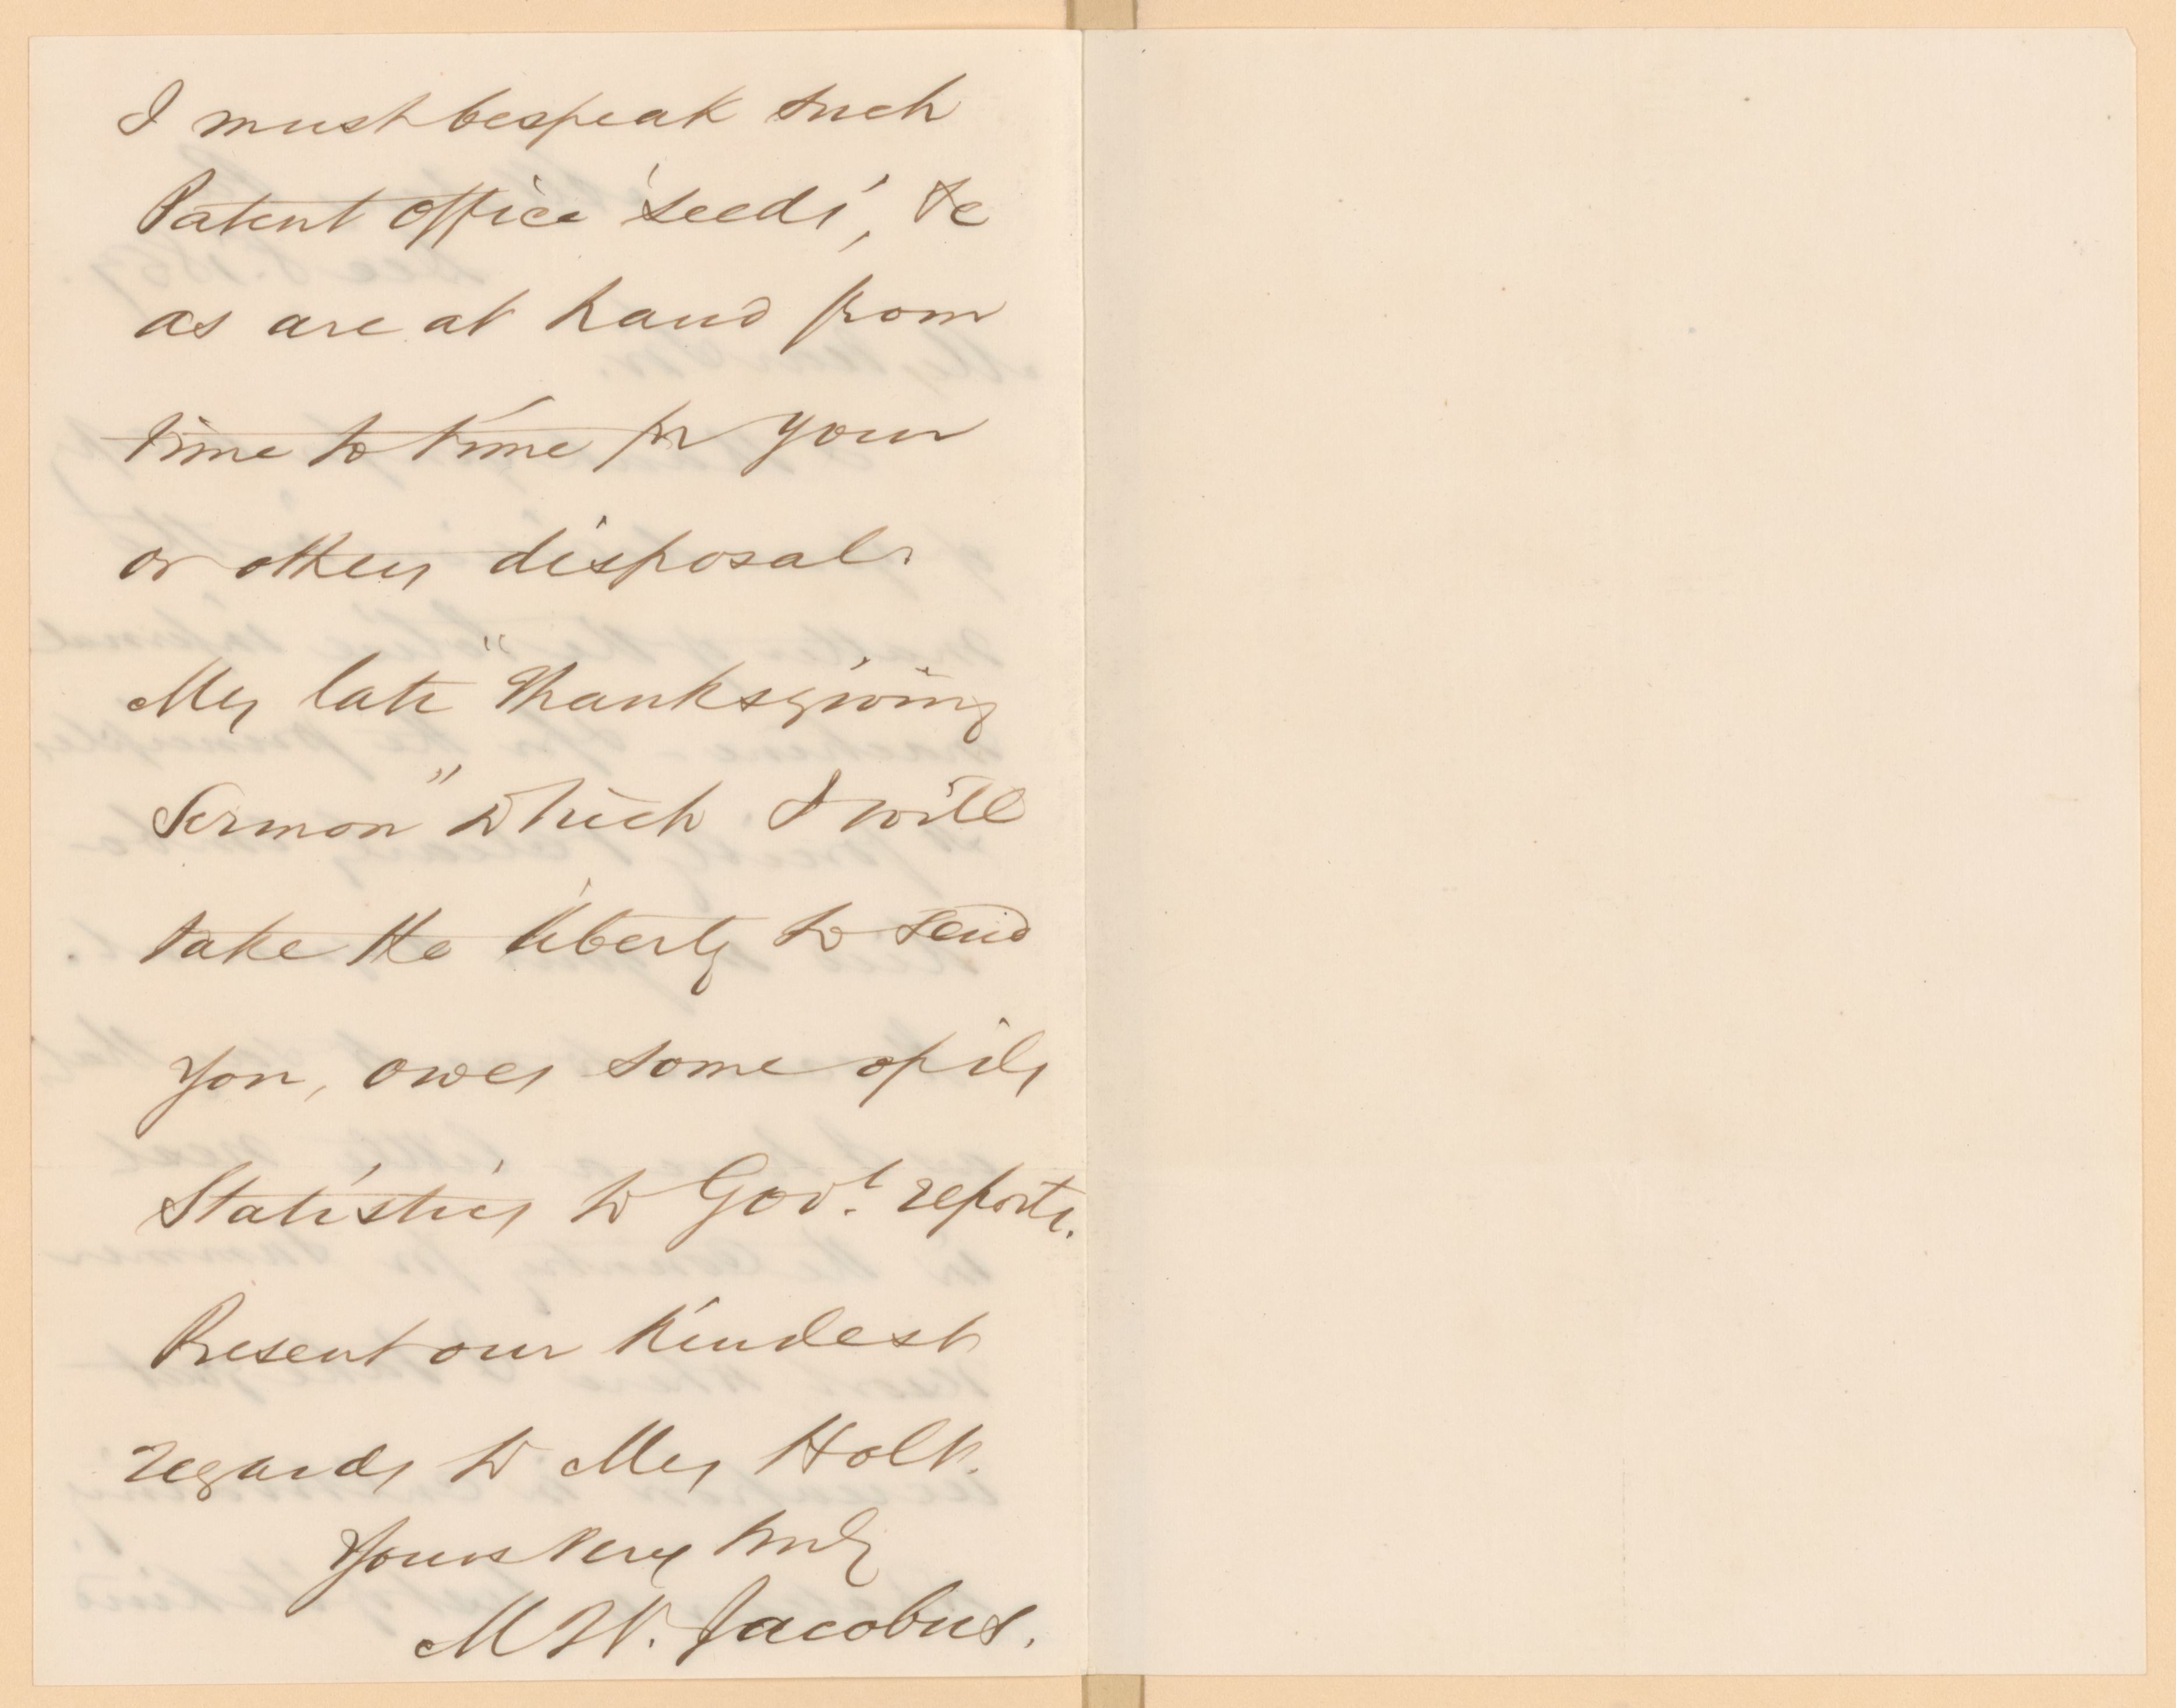 I must bespeak such
Patent office 'seeds', &c
as are at hand from
time to time for your
or others disposal.
My late "Thanksgiving
Sermon" which I will
take the liberty to send
you, owes some of its
Statistics to Govt. reports.
Present our kindest
regards to Mrs Holt.
Yours very truly
M W. Jacobus.